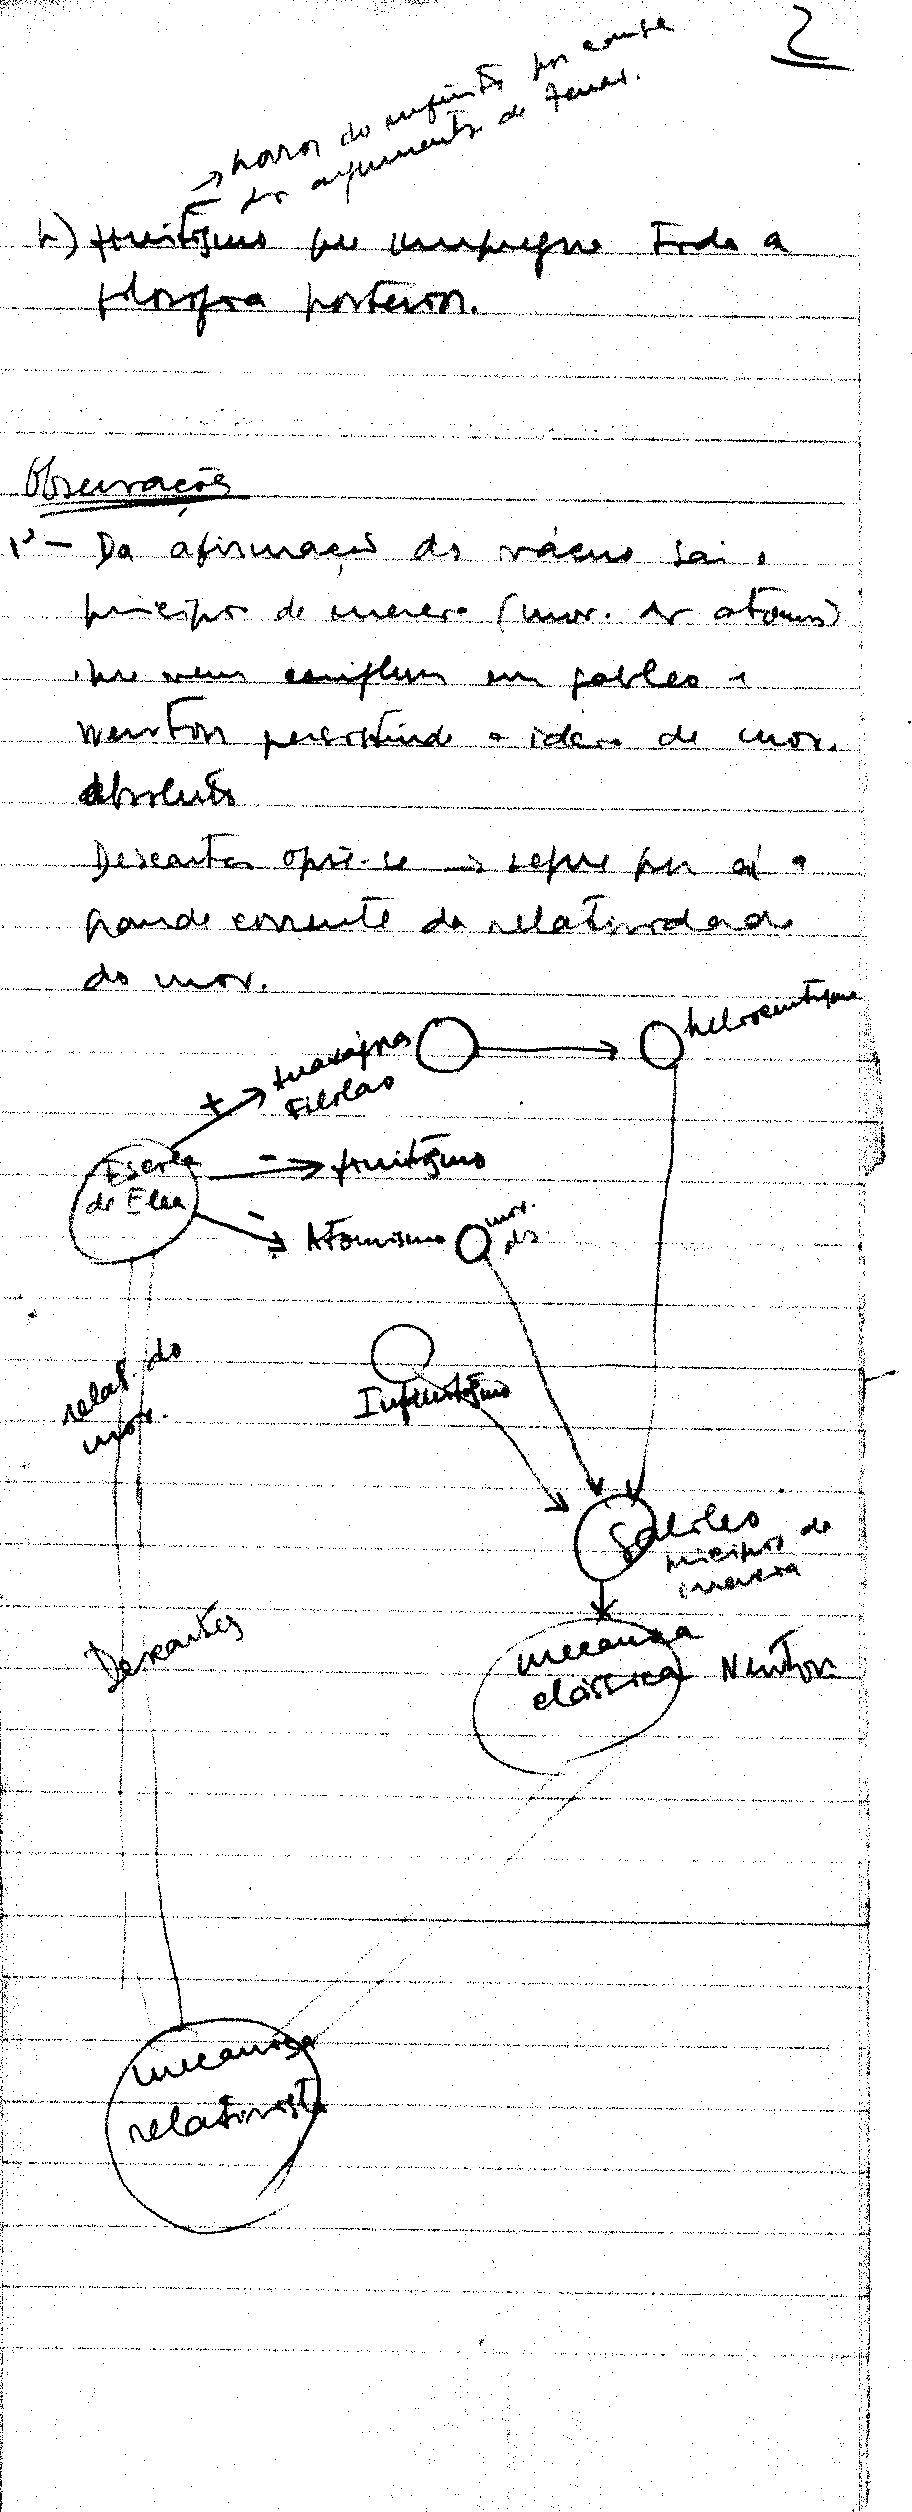 2
→ horror do infinito por causa
dos argumentos de Zenão.
b) finitismo que impregna toda a
filosofia posterior.
Observações
1ª - Da afirmação do vácuo sai o
princípio de inércia (mov. dos átomos)
que vem confluir em Galileo e
Newton persistindo a ideia de mov.
absoluto
Descartes opõe-se → segue por aí a
grande corrente da relatividade
do mov.
heliocentrismo
+
Anaxágoras
Filolao
Escola
de Elea
-
finitismo
-
Atomismo
mov.
relat. do
mov.
Infinitismo
Galileo
princípio de
inércia
Descartes
mecanica
clássica
Newton
mecanica
relativista